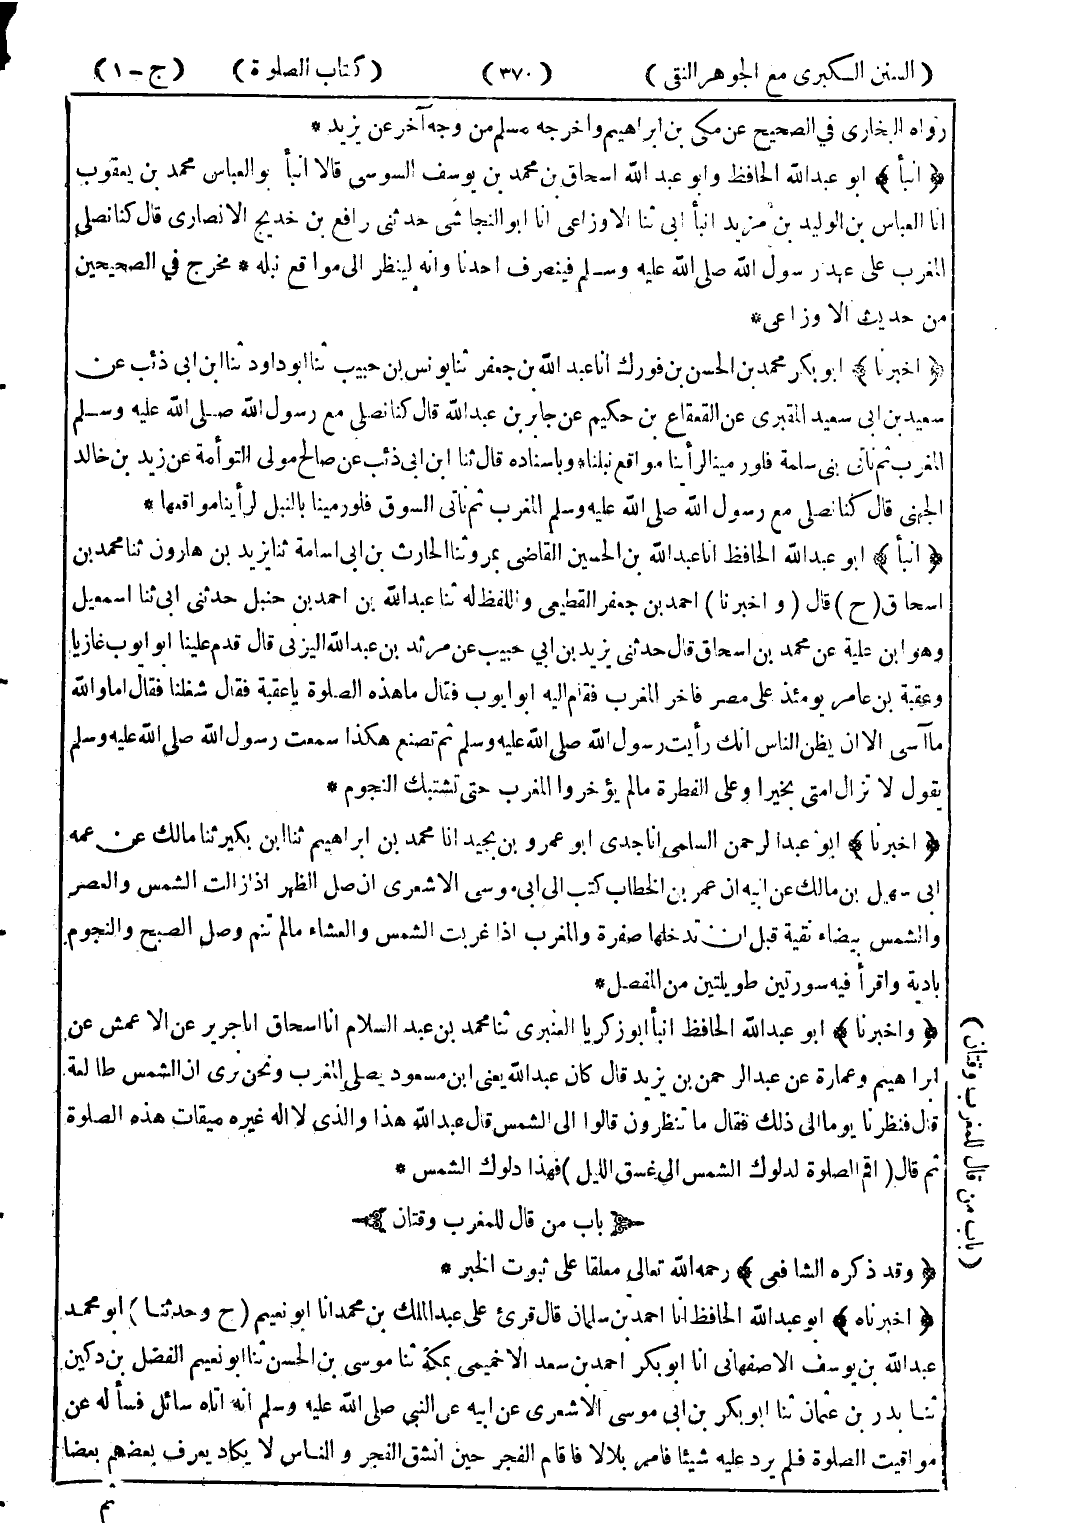 ( السنن الكبرى مع الجوهر النقى ) ( ٣٧٠ ) ( كتاب الصلوة ) ( ج - ١ )
رواه البخارى في الصحيح عن مكى بن ابراهيم واخرجه مسلم من وجه آخر عن يزيد *
﴿ انبأ ﴾ ابو عبدالله الحافظ وابو عبد الله اسحاق بن محمد بن يوسف السوسى قالا انبأ بو العباس محمد بن يعقوب
انا العباس بن الوليد بن مزيد انبأ ابى ثنا الاوزاعى انا ابو النجاشى حدثنى رافع بن خديج الانصارى قال كنا نصلى
المغرب على عهد رسول الله صلى الله عليه وسلم فينصرف احدنا وانه لينظر الى مواقع نبله * مخرج في الصحيحين
من حديث الاوزاعى *
﴿ اخبرنا ﴾ ابو بكر محمد بن الحسن بن فورك انا عبد الله بن جعفر ثنا يونس بن حبيب ثنا ابو داود ثنا ابن ابى ذئب عن
سعيد بن ابى سعيد المقبرى عن القعقاع بن حكيم عن جابر بن عبدالله قال كنا نصلى مع رسول الله صلى الله عليه وسلم
المغرب ثم نأتى بنى سلمة فلو رمينا لرأينا مواقع نبلنا * وباسناده قال ثنا ابن ابى ذئب عن صالح مولى التوأمة عن زيد بن خالد
الجهنى قال كنا نصلى مع رسول الله صلى الله عليه وسلم المغرب ثم نأتى السوق فلو رمينا بالنبل لرأينا مواقعها *
﴿ انبأ ﴾ ابو عبدالله الحافظ انا عبدالله بن الحسين القاضى بمرو ثنا الحارث بن ابى اسامة ثنا يزيد بن هارون ثنا محمد بن
اسحاق ( ح ) قال ( و اخبرنا ) احمد بن جعفر القطيعى واللفظ له ثنا عبدالله بن احمد بن حنبل حدثنى ابى ثنا اسمعيل
وهو ابن علية عن محمد بن اسحاق قال حدثنى يزيد بن ابي حبيب عن مرثد بن عبدالله اليزنى قال قدم علينا ابو ايوب غازيا
وعقبة بن عامر يومئذ على مصر فاخر المغرب فقام اليه ابو ايوب فقال ما هذه الصلوة يا عقبة فقال شغلنا فقال اما والله
ما آسى الا ان يظن الناس انك رأيت رسول الله صلى الله عليه وسلم ثم تصنع هكذا سمعت رسول الله صلى الله عليه وسلم
يقول لا تزال امتى بخيرا وعلى الفطرة مالم يؤخروا المغرب حتى تشتبك النجوم *
﴿ اخبرنا ﴾ ابو عبدالرحمن السلمى انا جدى ابو عمرو بن نجيد انا محمد بن ابراهيم ثنا ابن بكير ثنا مالك عن عمه
ابى سهيل بن مالك عن ابيه ان عمر بن الخطاب كتب الى ابى موسى الاشعرى ان صل الظهر اذا زالت الشمس والعصر
والشمس بيضاء نقية قبل ان تدخلها صفرة والمغرب اذا غربت الشمس والعشاء مالم تنم وصل الصبح والنجوم
بادية واقرأ فيه سورتين طويلتين من المفصل *
﴿ واخبرنا ﴾ ابو عبدالله الحافظ انبأ ابو زكريا العنبرى ثنا محمد بن عبد السلام انا اسحاق انا جرير عن الاعمش عن
ابراهيم وعمارة عن عبدالرحمن بن يزيد قال كان عبدالله يعنى ابن مسعود يصلى المغرب ونحن نرى ان الشمس طالعة
قال فنظرنا يوما الى ذلك فقال ما تنظرون قالوا الى الشمس قال عبدالله هذا والذى لا اله غيره ميقات هذه الصلوة
ثم قال ( اقم الصلوة لدلوك الشمس الى غسق الليل ) فهذا دلوك الشمس *
باب من قال للمغرب وقتان
﴿ وقد ذكره الشافعى ﴾ رحمه الله تعالى معلقا على ثبوت الخبر *
﴿ اخبرناه ﴾ ابو عبدالله الحافظ انا احمد بن سلمان قال قرئ على عبد الملك بن محمد انا ابو نعيم ( ح وحدثنا ) ابو محمد
عبدالله بن يوسف الاصفهانى انا ابو بكر احمد بن سعد الاخميمى بمكة ثنا موسى بن الحسن ثنا ابو نعيم الفضل بن دكين
ثنا بدر بن عثمان ثنا ابو بكر بن ابى موسى الاشعرى عن ابيه عن النبي صلى الله عليه وسلم انه اتاه سائل فسأله عن
مواقيت الصلوة فلم يرد عليه شيئا فامر بلالا فاقام الفجر حين انشق الفجر و الناس لا يكاد يعرف بعضهم بعضا
ثم
( باب من قال للمغرب وقتان )